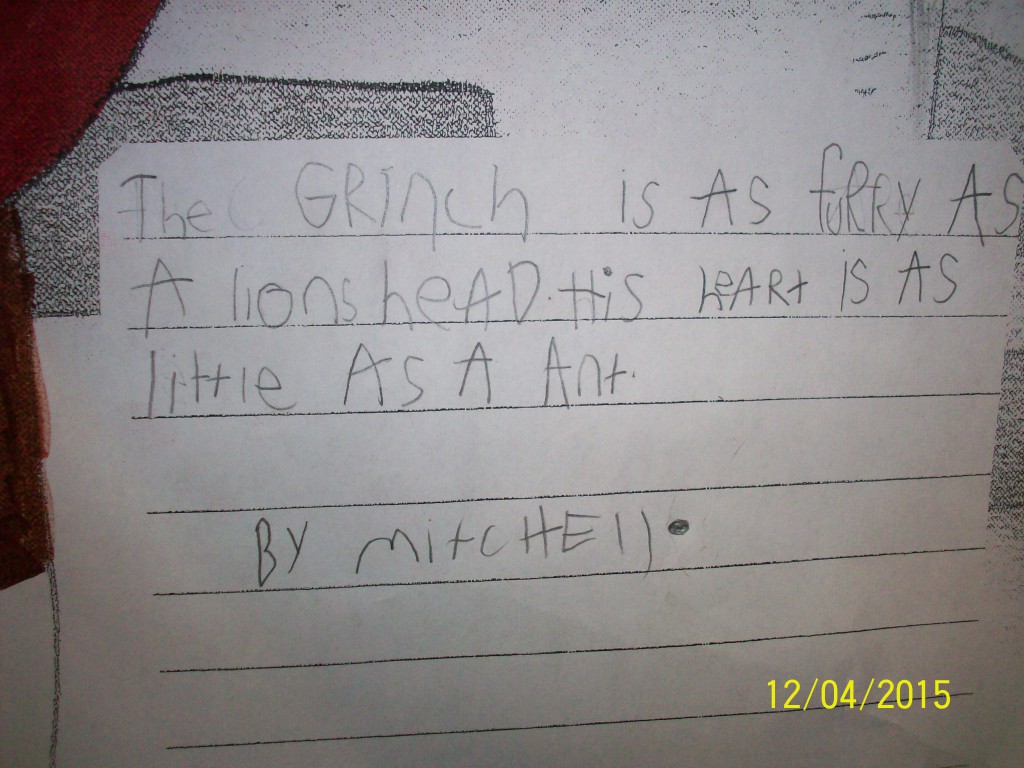 The GRInch is AS fuRRy AS
A lions heAD. His heARt IS AS
little AS A Ant.
BY mitcHEll.
12/04/2015